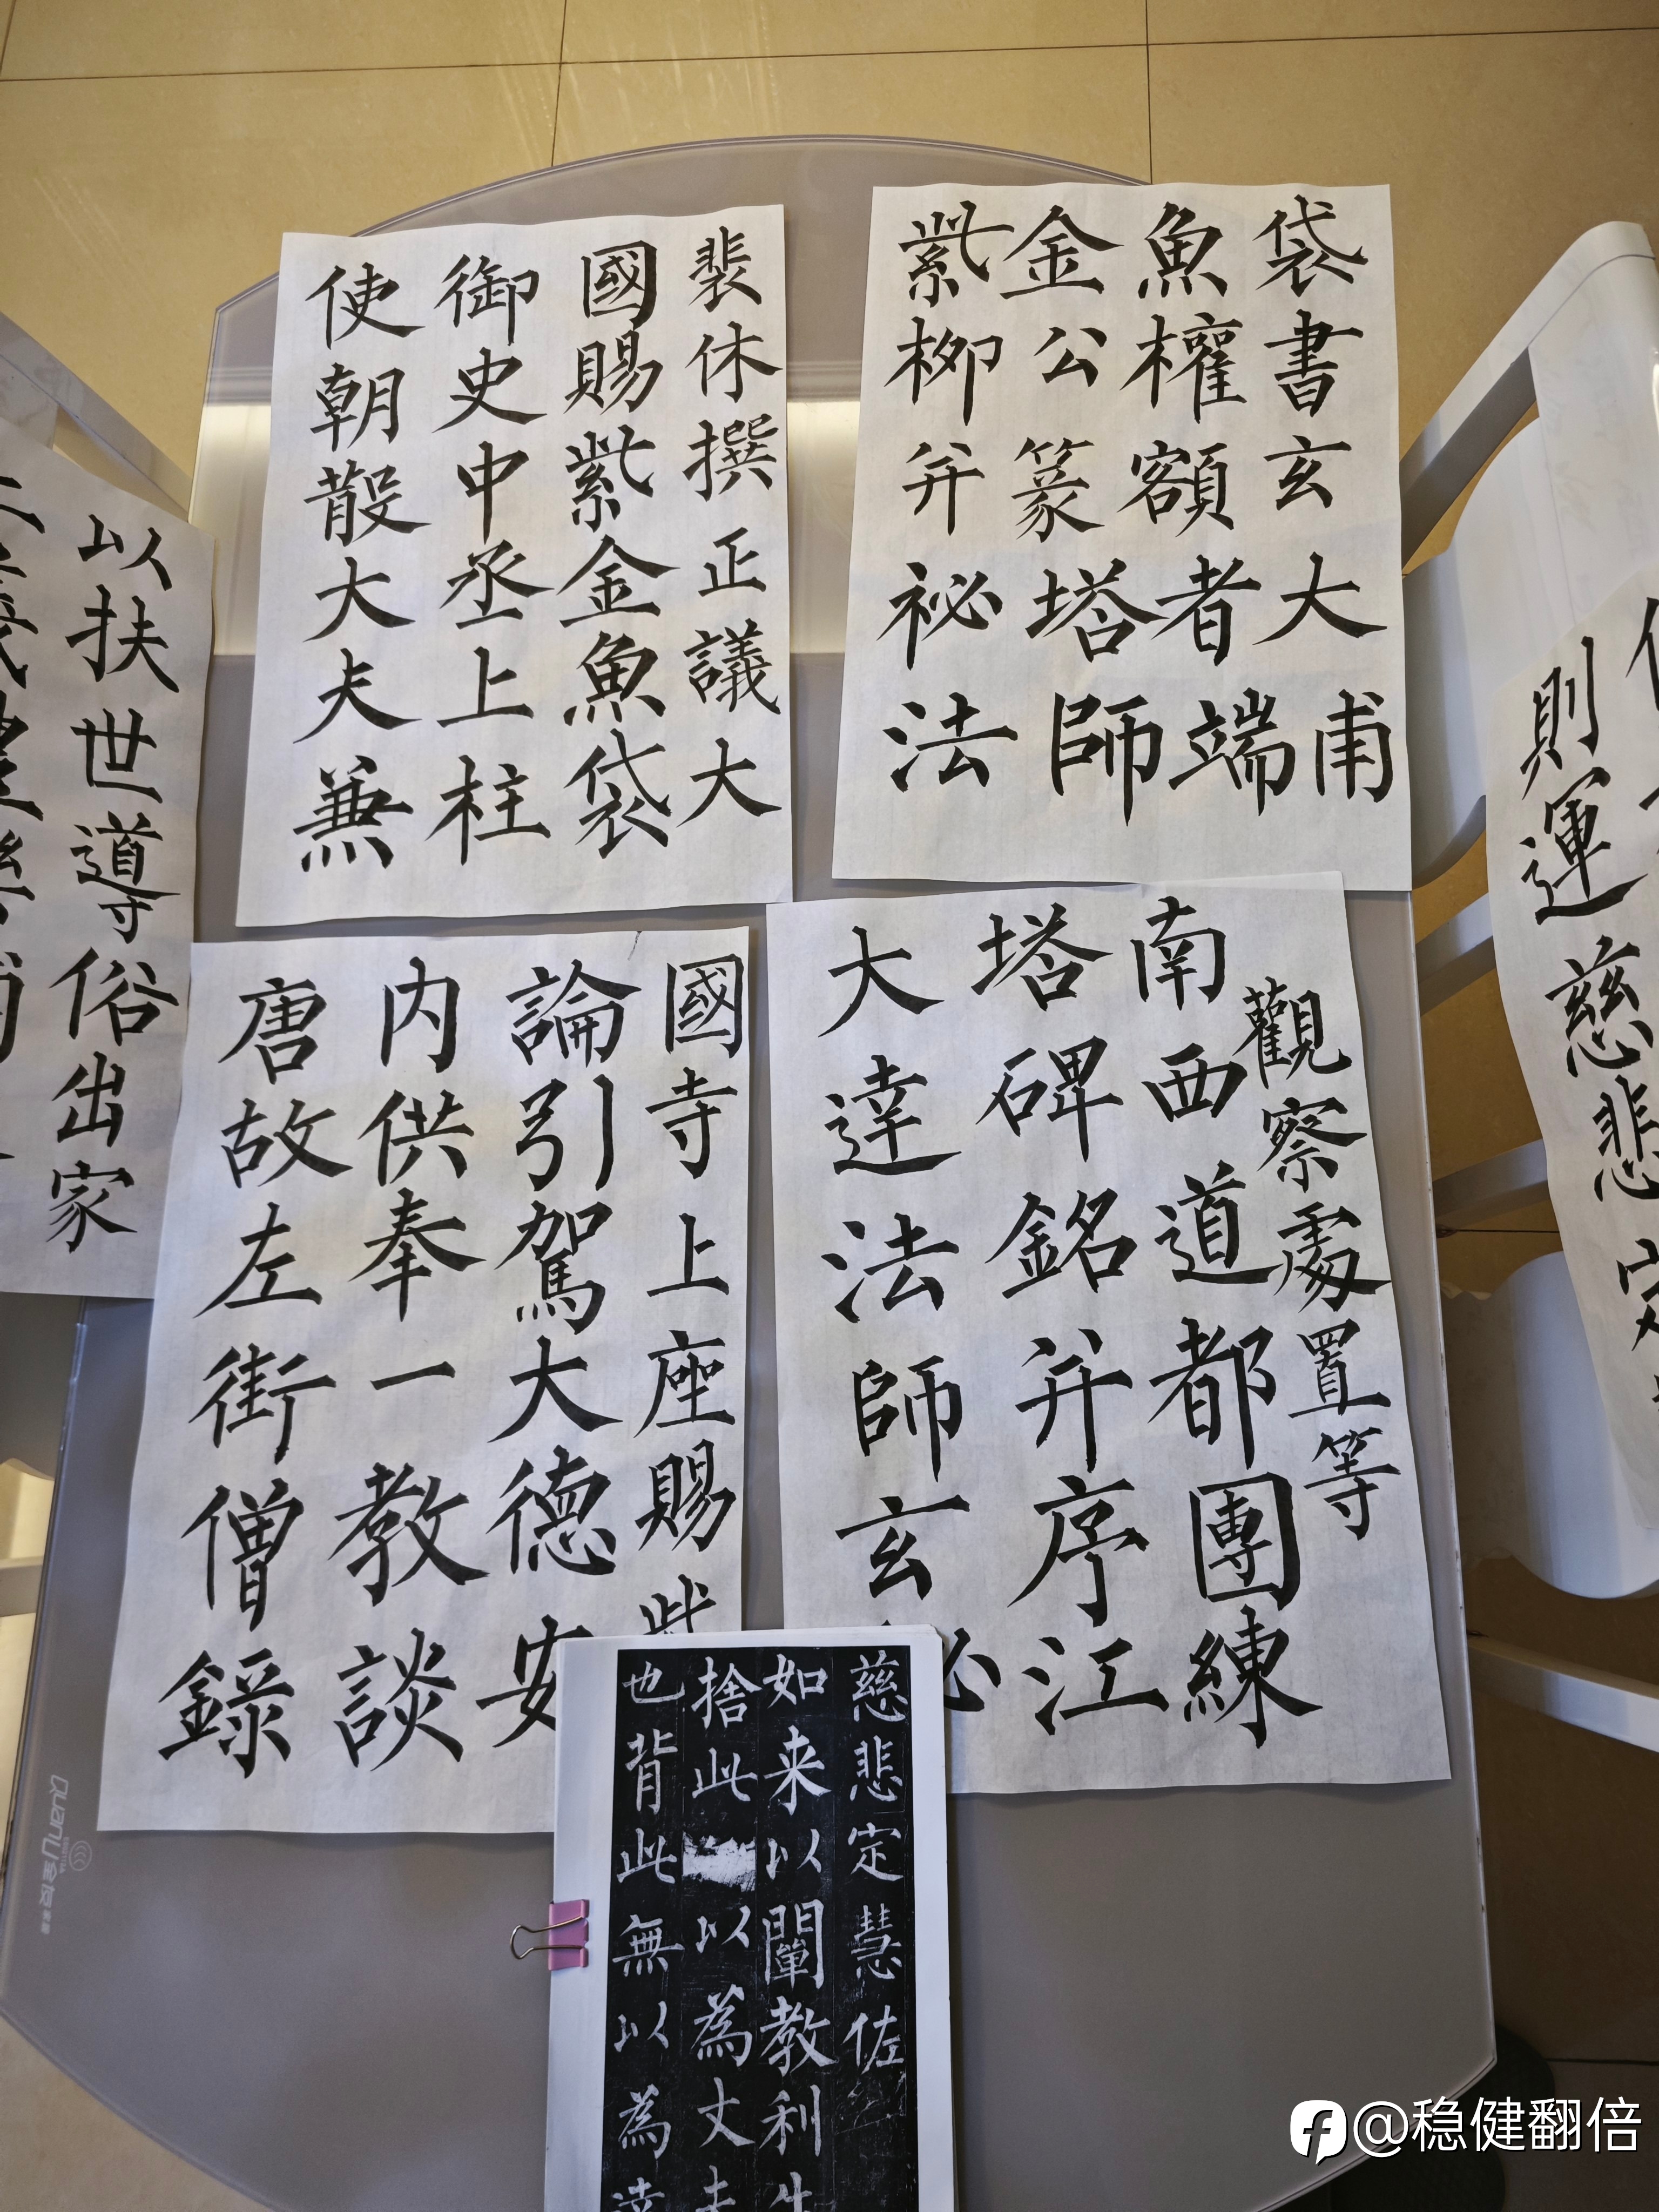 唐故左街僧錄
内供奉一教談
論引駕大德安
國寺上座賜
大達法師玄
塔碑銘并序江
南西道都團練
觀察處置等
使朝散大夫兼
御史中丞上柱
國賜紫金魚袋
裴休撰正議大
紫金魚袋
柳公權書
并篆額玄
祕塔者大
法師端甫
以扶世導俗出家
則運慈悲定
慈悲定慧佐
如来以闡教利生
捨此以為丈夫
也背此無以為達
@稳健翻倍